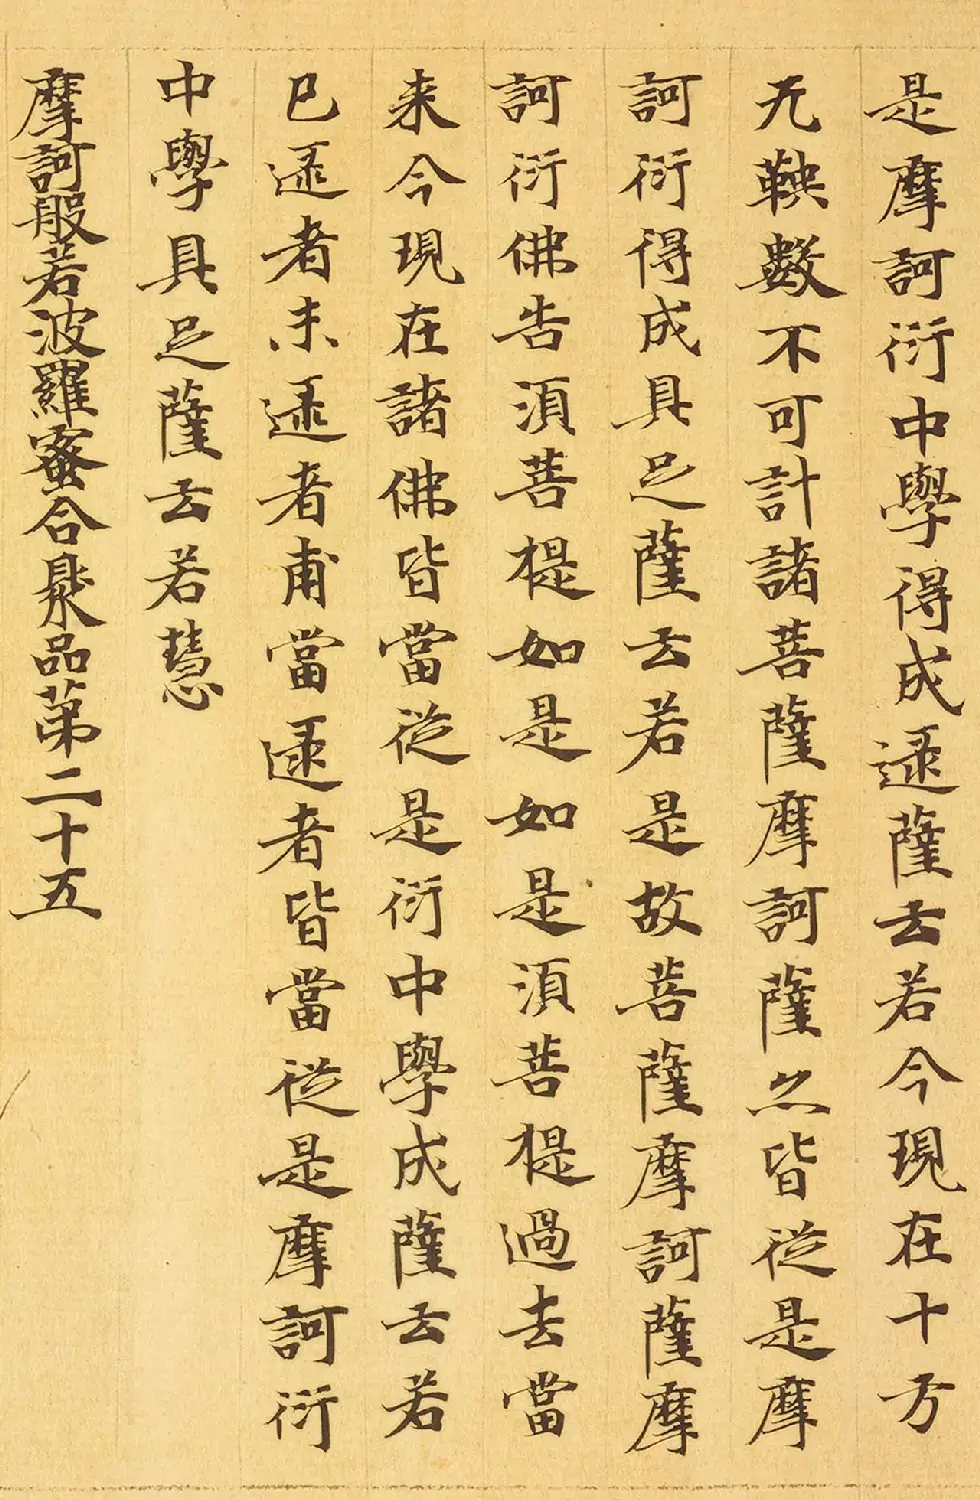 是摩訶衍中學得成逮薩云若今現在十方
无鞅數不可計諸菩薩摩訶薩亦皆從是摩
訶衍得成具足薩云若是故菩薩摩訶薩摩
訶衍佛告須菩提如是如是須菩提過去當
来今現在諸佛皆當從是衍中學成薩云若
已逮者未逮者甫當逮者皆當從是摩訶衍
中學具足薩云若慧
摩訶般若波羅蜜合聚品第二十五